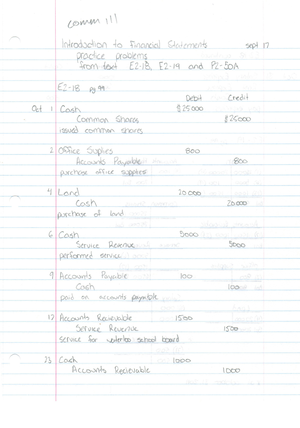 comm 111
Introduction to Financial Statements sept 17
practice problems
from text E2-18, E2-19 and P2-50A
E2-18 pg 94
Debit Credit
Oct 1 Cash $25000
Common Shares $25000
issued common shares
2 Office Supplies 800
Accounts Payable 800
purchase office supplies
4 Land 20000
Cash 20000
purchase of land
6 Cash 5000
Service Revenue 5000
performed service
9 Accounts Payable 100
Cash 100
paid on accounts payable
17 Accounts Recievable 1500
Service Revenue 1500
service for waterloo school board
23 Cash 1000
Accounts Recievable 1000